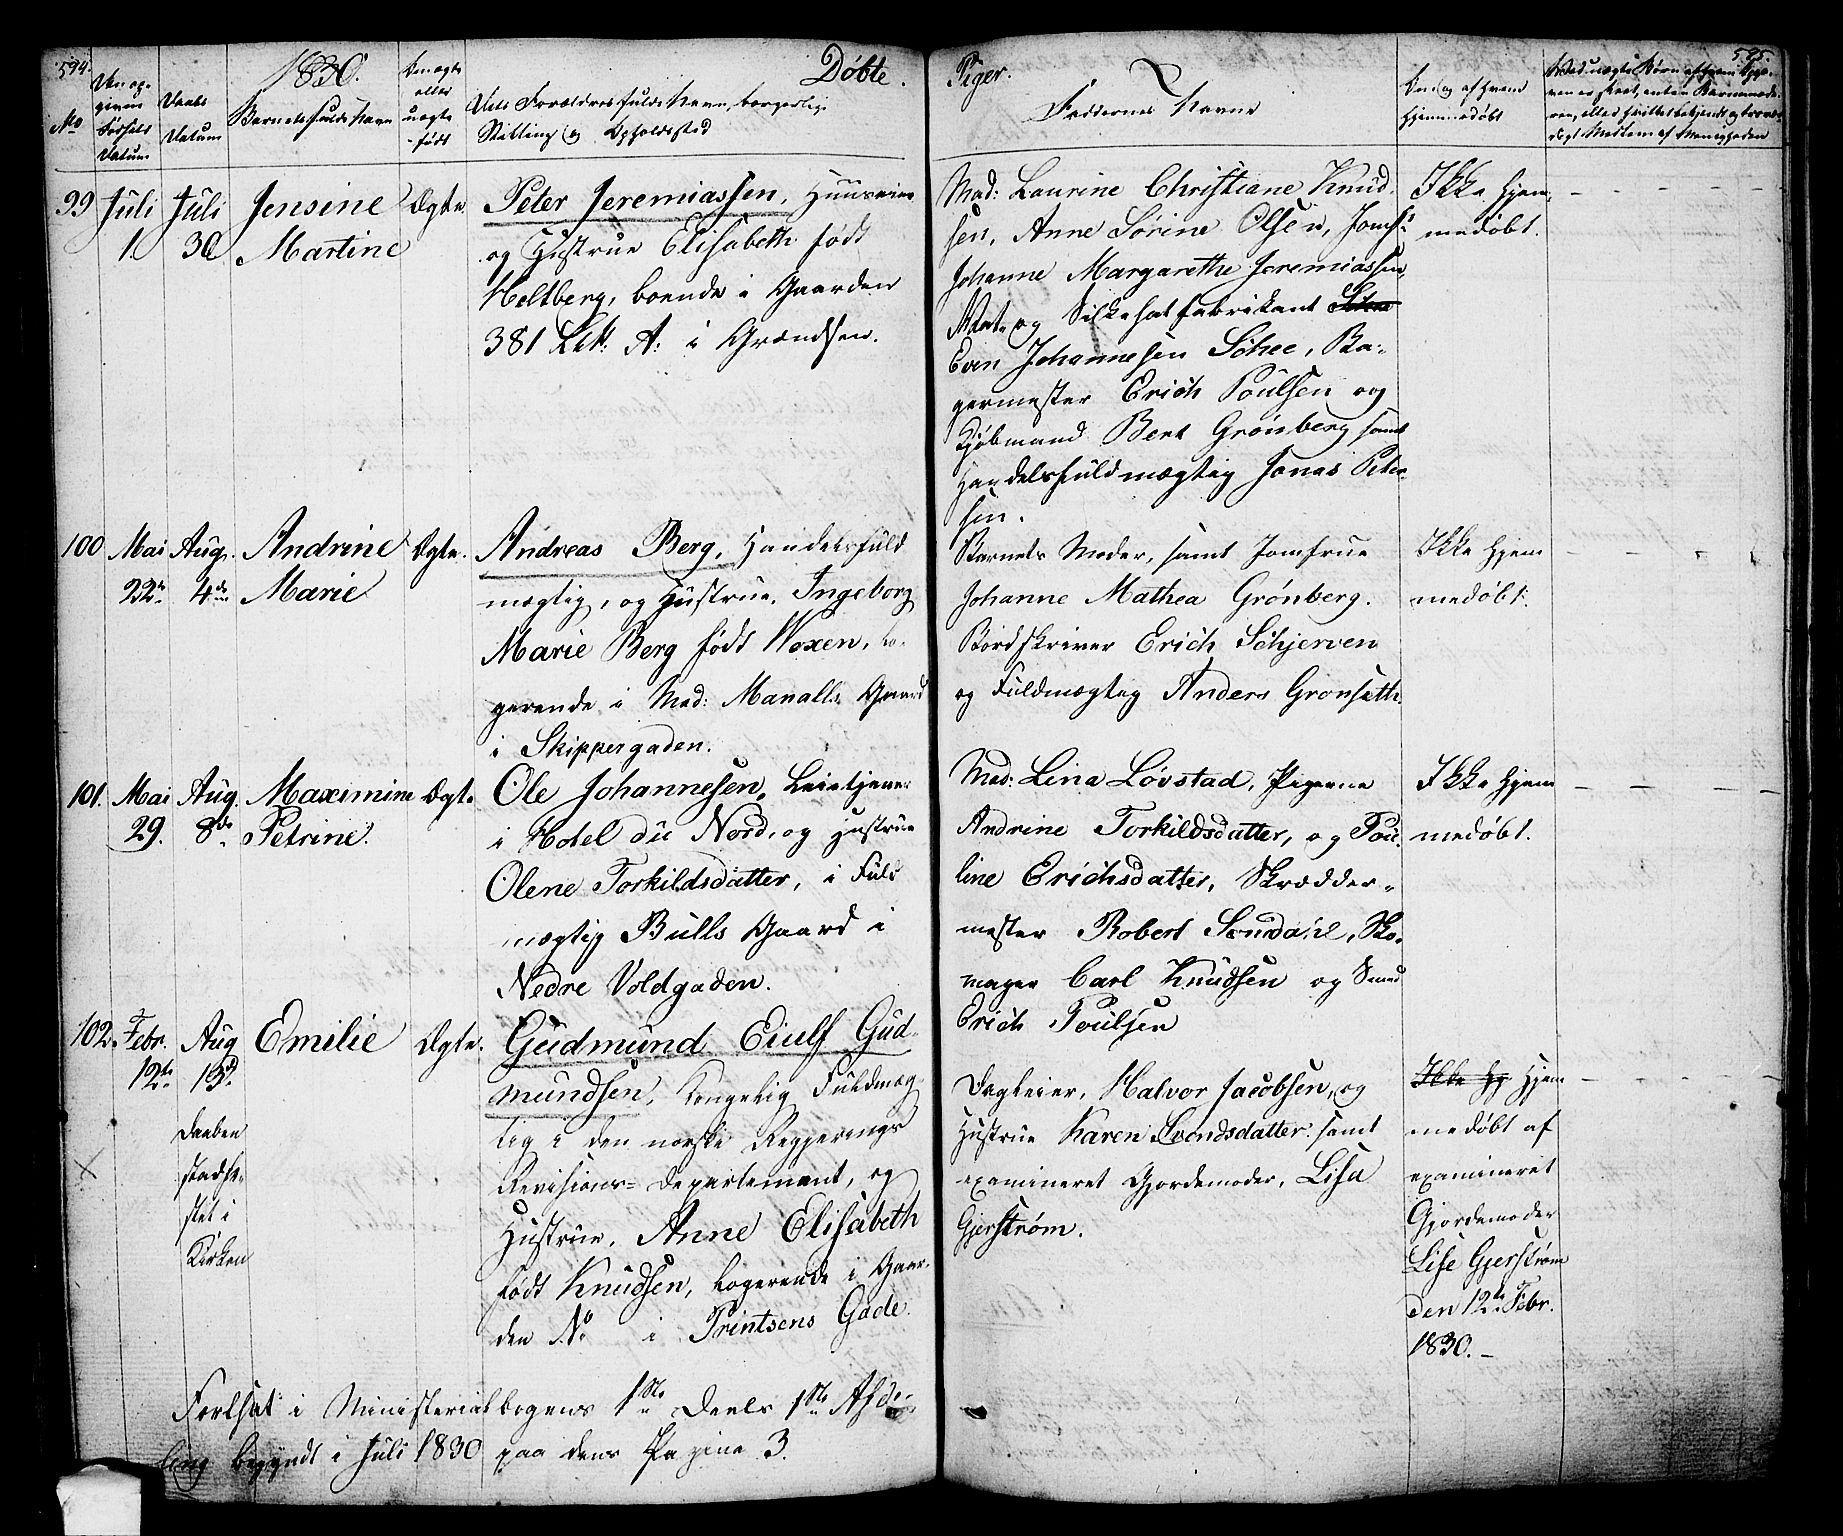 594.
1830.
Døbte
No
Den op-
given
Fødsels
Datum
Daabs
Datum
Barnets fulde Navn
Om ægte
eller
uægte
født
Dets Forældres fulde Navn, borgerlig
Stilling og Opholdsted
99
Juli
1.
Juli
30
Jensine
Martine
Ægte.
Peter Jeremiassen, Huuseier
og Hustrue Elisabeth født
Holtberg, boende i Gaarden
381 Litr. A: i Grændsen.
100
Mai
22de
Aug.
4de
Andrine
Marie
Ægte.
Andreas Berg, Handelsfuld
mægtig, og Hustrue, Ingeborg
Marie Berg født Woxen, lo-
gerende i Mad: Manalls Gaard
i Skippergaden.
101.
Mai
29.
Aug.
8de
Maximine
Petrine.
Ægte
Ole Johannesen, Leietjener
i Hotel du Nord, og Hustrue
Olene Torkildsdatter, i Fuld
mægtig Bulls Gaard i
Nedre Voldgaden.
102.
Febr.
12te
Aug
13de
Daaben
stadfæ-
stet i
Kirken
Emilie
Ægte.
Gudmund Eiulf Gud-
mundsen, Kongelig Fuldmæg
tig i den norske Regjerings
Revisions-Departement, og
Hustrue, Anne Elisabeth
født Knudsen, logerende i Gaar-
den No i Printsens Gade.
Fortsat i Ministerialbogens 1ste Deels 1ste Afde-
ling begyndt i Juli 1830 paa dens Pagina 3.
595.
Piger.
Faddernes Navne
Om og af hvem
hjemmedøbt
Ved uægte Børn af hvem Opgi-
ven er skeet, enten Barnemode-
ren, eller hvilket bekjendt og trovær-
digt Medlem af Menigheden
Mad: Laurine Christiane Knud-
sen, Anne Sørine Olsen, Jomf:
Johanne Margarethe Jeremiassen,
og Silkehatfabrikant
Even Johannesen Schee, Ba-
germester Erich Poulsen og
Kjøbmand Bent Grønberg samt
Handelsfuldmægtig Jonas Peter-
sen.
Ikke hjem-
medøbt.
Barnets Moder, samt Jomfrue
Johanne Mathea Grønberg.
Bordskriver Erich Schjerven
og Fuldmægtig Anders Gronseth.
Ikke hjem
medøbt.
Mad: Lina Løvstad, Pigerne
Andrine Torkildsdatter, og Pou-
line Erichsdatter, Skrædder-
mester Robert Sundahl, Sko-
mager Carl Knudsen og Smed
Erich Poulsen
Ikke hjem
medøbt.
Dagleier, Halvor Jacobsen, og
Hustrue Karen Svendsdatter. samt
examineret Gjordemoder, Lisa
Gjerstrøm.
Ikke Hj Hjem
medøbt af
examineret
Gjordemoder
Lise Gjerstrøm
den 12te Febr.
1830.